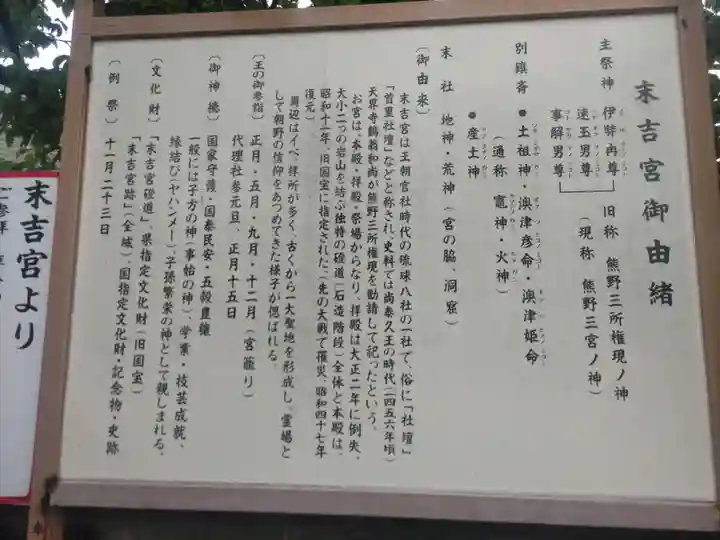 末吉宮御由緒
主祭神 伊弉冉尊 旧称 熊野三所権現ノ神
速玉男尊
事解男尊 (現称 熊野三宮ノ神)
別鎮斎 ●土祖神・澳津彦命・澳津姫命
(通称 竃神・火神)
●産土神
末社 地神・荒神(宮の脇、洞窟)
〔御由来〕
末吉宮は王朝官社時代の琉球八社の一社で、俗に「社壇」
「首里社壇」などと称され、史料では尚泰久王の時代(一四五六年頃)
天界寺鶴翁和尚が熊野三所権現を勧請して祀ったという。
お宮は、本殿・拝殿・祭場からなり、拝殿は大正二年に倒失、
大小二つの岩山を結ぶ独特の磴道(石造階段)全体と本殿は、
昭和十一年、旧国宝に指定された。(先の大戦で罹災、昭和四十七年
復元)
周辺はイベ、拝所が多く、古くから一大聖地を形成し、霊場と
して朝野の信仰をあつめてきた様子が偲ばれる。
〔王の御参詣〕 正月・五月・九月・十二月(宮籠り)
代理社参元旦、正月十五日
〔御神徳〕 国家守護・国泰民安・五穀豊穣
一般には子方の神(事始の神)、学業・技芸成就、
縁結び(ヤハンメー)、子孫繁栄の神として親しまれる。
〔文化財〕 「末吉宮磴道」、県指定文化財(旧国宝)
「末吉宮跡」(全域)、国指定文化財・記念物・史跡
〔例祭〕 十一月二十三日
末吉宮より